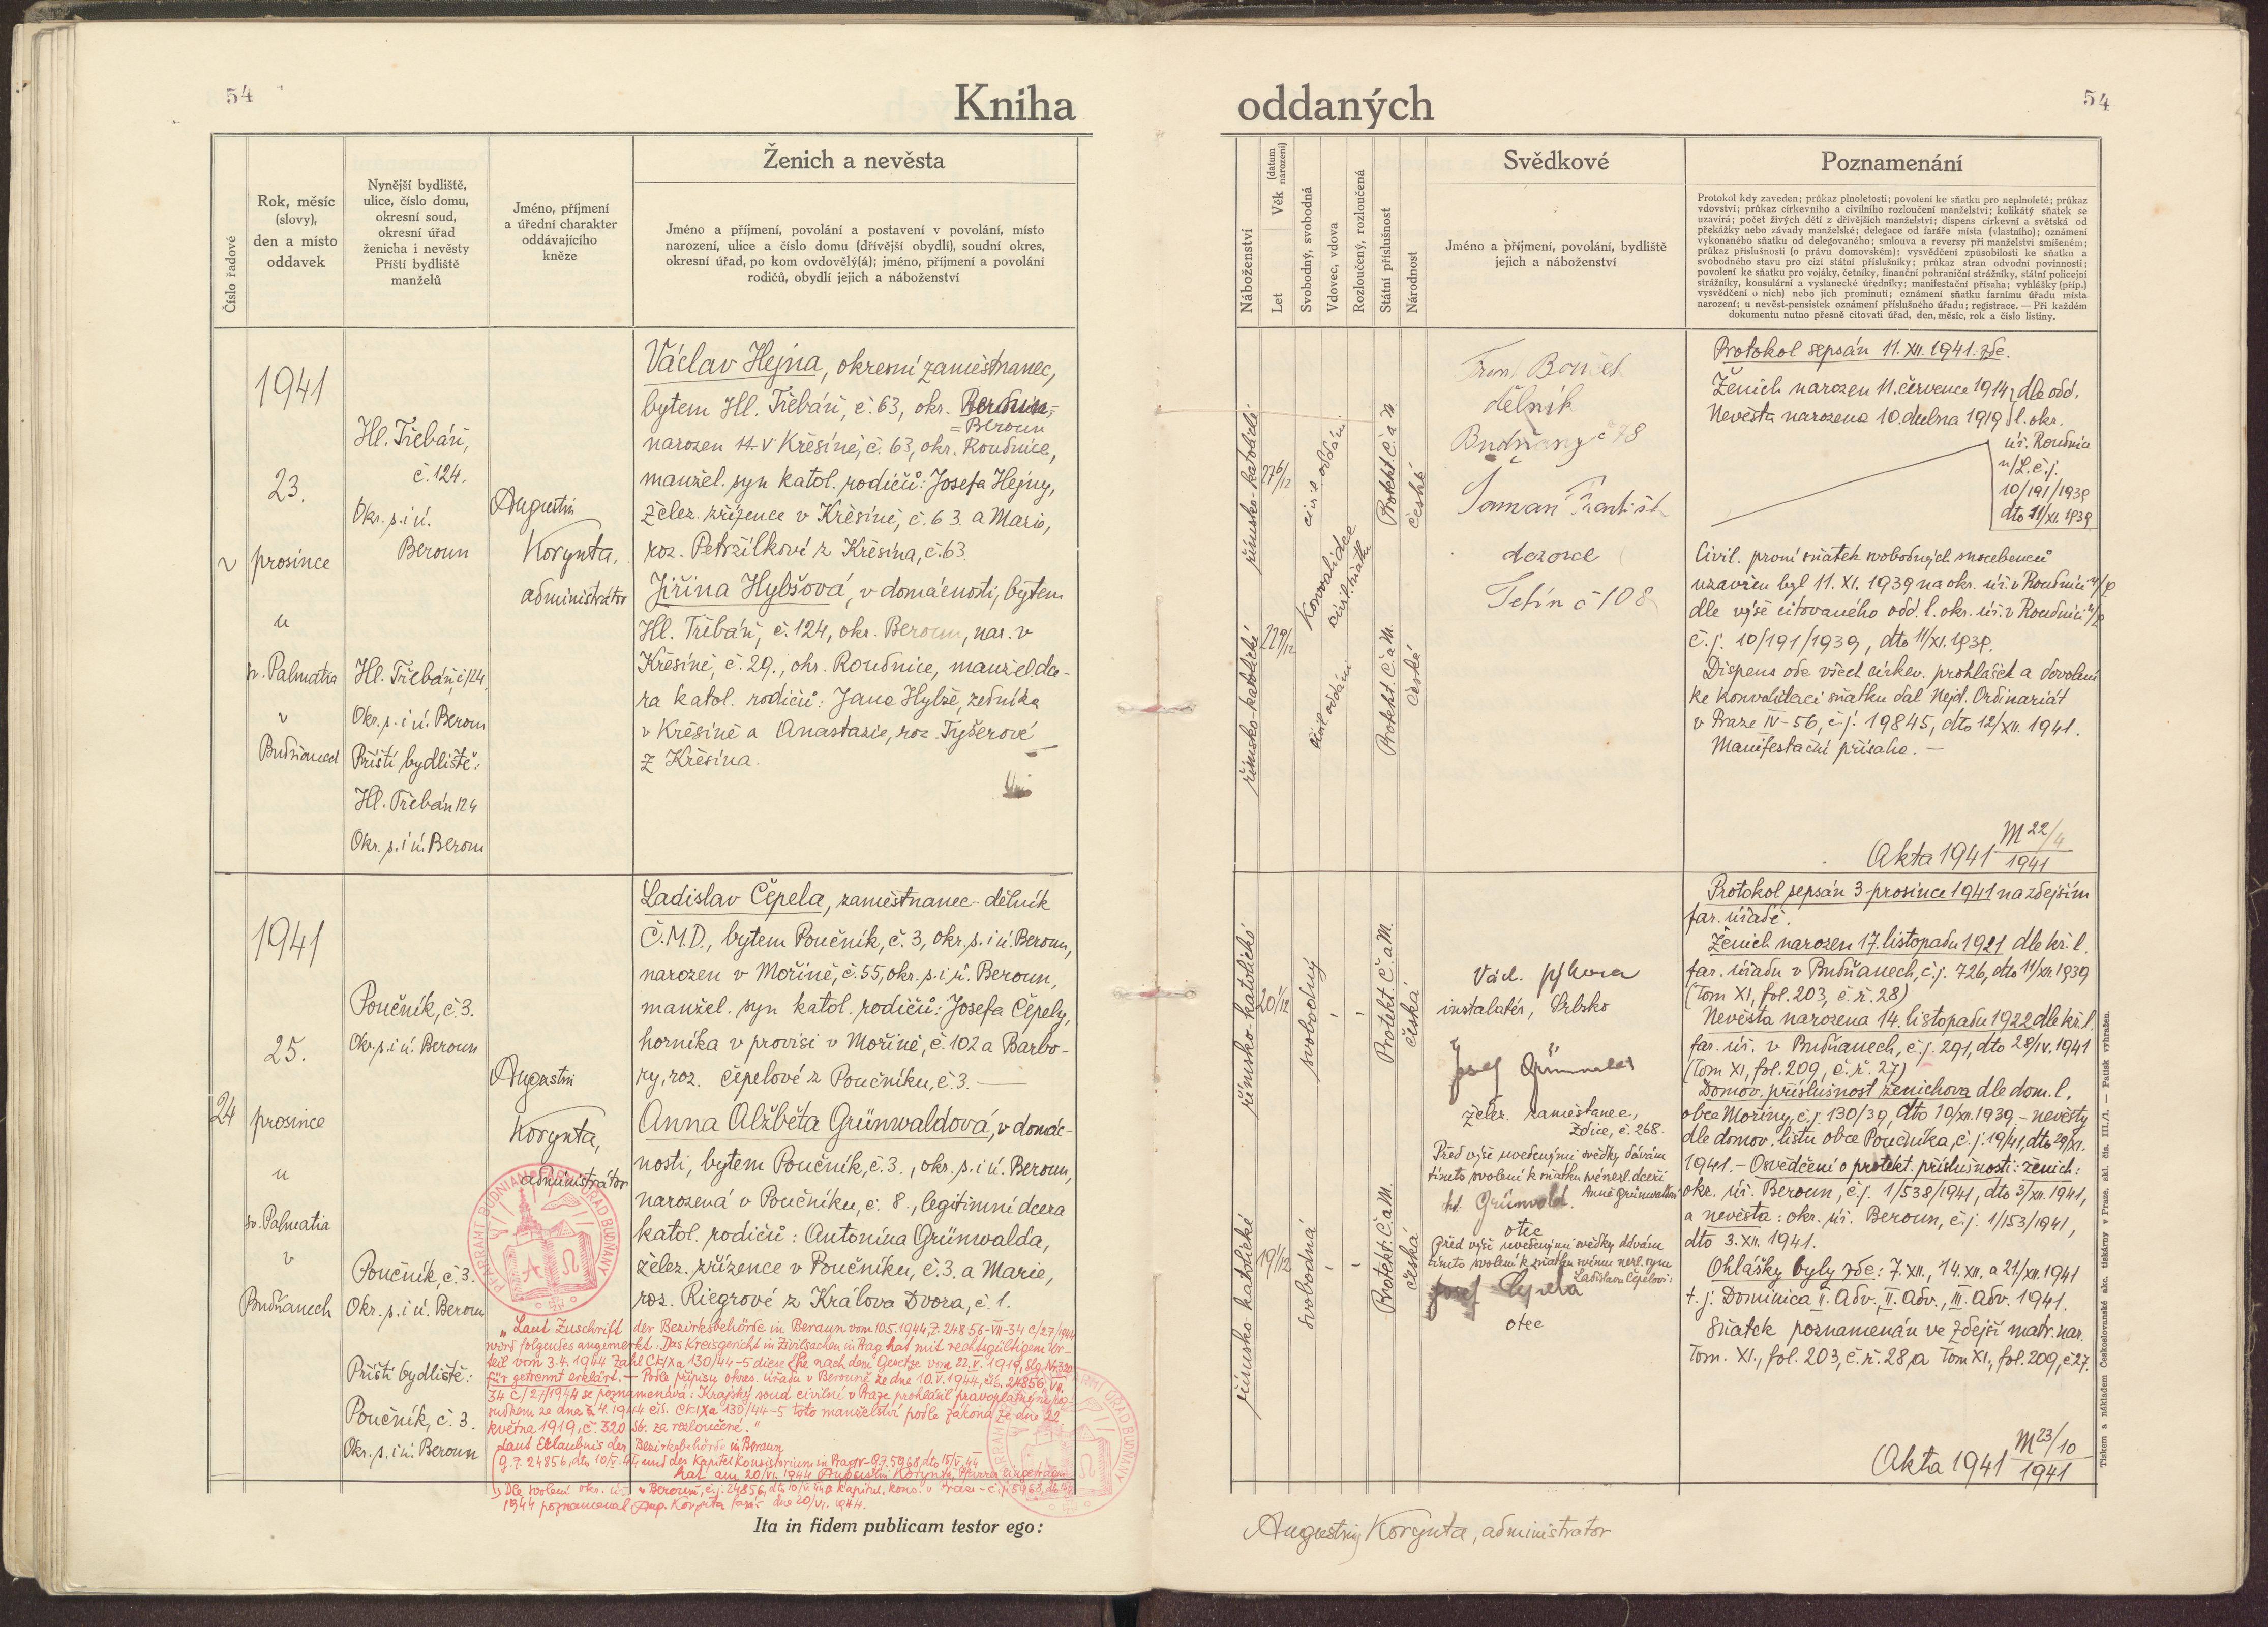 54
Kniha
Číslo řadové
Rok, měsíc
(slovy),
den a místo
oddavek
Nynější bydliště,
ulice, číslo domu,
okresní soud,
okresní úřad
ženicha i nevěsty
Příští bydliště
manželů
Jméno, příjmení
a úřední charakter
oddávajícího
kněze
Ženich a nevěsta
Jméno a příjmení, povolání a postavení v povolání, místo
narození, ulice a číslo domu (dřívější obydlí), soudní okres,
okresní úřad, po kom ovdovělý(á); jméno, příjmení a povolání
rodičů, obydlí jejich a náboženství
1941
23.
prosince
u
sv. Palmatia
v
Budňanech
Hl. Třebáň,
č. 124.
Okr. s. i ú.
Beroun
Hl. Třebáň, č 124,
Okr. s. i ú. Beroun
Příští bydliště:
Hl. Třebáň 124
Okr. s. i ú. Beroun
Augustin
Korynta,
administrátor
Václav Hejna, okresní zaměstnanec,
bytem Hl. Třebáň, č. 63, okr.
= Beroun
narozen v Křesíně, č. 63, okr. Roudnice,
manžel. syn katol. rodičů: Josefa Hejny,
želez. zřízence v Křesíně, č. 63. a Marie,
roz. Petržilkové z Křesína, č. 63.
Jiřina Hybšová, v domácnosti, bytem
Hl. Třebáň, č. 124, okr. Beroun, nar. v
Křesíně, č. 29., okr. Roudnice, manžel. dce-
ra katol. rodičů: Jana Hybše, zedníka
v Křesíně a Anastazie, roz. Tyšerové
z Křesína.
1941
25.
24 prosince
u
sv. Palmatia
v
Budňanech
Poučník, č. 3.
Okr. s. i ú. Beroun
Poučník, č. 3.
Okr. s. i ú. Beroun
Příští bydliště:
Poučník, č. 3.
Okr. s. i ú. Beroun
Augustin
Korynta,
administrátor
Ladislav Čepela, zaměstnanec-dělník
Č.M.D., bytem Poučník, č. 3, okr. s. i ú. Beroun,
narozen v Mořině, č. 55, okr. s. i ú. Beroun,
manžel. syn katol. rodičů: Josefa Čepely,
horníka v provisi v Mořině, č. 102 a Barbo-
ry, roz. Čepelové z Poučníku, č. 3.
Anna Alžběta Grünwaldová, v domác-
nosti, bytem Poučník, č. 3., okr. s. i ú. Beroun,
narozená v Poučníku, č. 8., legitimní dcera
katol. rodičů: Antonína Grünwalda,
želez. zřízence v Poučníku, č. 3. a Marie,
roz. Riegrové z Králova Dvora, č. 1.
„Laut Zuschrift der Bezirksbehörde in Beraun vom 10.5.1944, Z. 24856-VII-34 C/27/1944
wird folgendes angemerkt: Das Kreisgericht in Zivilsachen in Prag hat mit rechtsgültigem Ur-
teil vom 3.4.1944 Zahl Ck Ixa 130/44-5 diese Ehe nach dem Gesetze vom 22. V. 1919, Slg. Nr. 320
für getrennt erklärt. — Podle přípisu okres. úřadu v Berouně ze dne 10. V. 1944, čís. 24856, VII.
34 C/27/1944 se poznamenává: Krajský soud civilní v Praze prohlásil pravoplatným roz-
sudkem ze dne 3. 4. 1944 čís. Ck Ixa 130/44-5 toto manželství podle zákona ze dne 22.
května 1919, č. 320 Sb. za rozloučené."
Laut Erlaubnis der Bezirksbehörde in Beraun
G. Z. 24856, dto 10/V. 44 und des Kapitel Konsistorium in Prag IV-G.Z. 5968, dto 15/V. 44
hat am 20/VI. 1944 Augustin Korynta, Pfarrer eingetragen.
Dle svolení okr. úř. v Berouně, č. j. 24856, dto 10/V. 44 a Kapitul. kons. v Praze - č. j. 5968,
1944 poznamenal Aug. Korynta farář dne 20/VI. 1944.
Ita in fidem publicam testor ego:
oddaných
54
Náboženství
Let Věk (datum narození)
Svobodný, svobodná
Vdovec, vdova
Rozloučený, rozloučená
Státní příslušnost
Národnost
Svědkové
Jméno a příjmení, povolání, bydliště
jejich a náboženství
Poznamenání
Protokol kdy zaveden; průkaz plnoletosti; povolení ke sňatku pro neplnoleté; průkaz
vdovství; průkaz církevního a civilního rozloučení manželství; kolikátý sňatek se
uzavírá; počet živých dětí z dřívějších manželství; dispens církevní a světská od
překážky nebo závady manželské; delegace od faráře místa (vlastního); oznámení
vykonaného sňatku od delegovaného; smlouva a reversy při manželství smíšeném;
průkaz příslušnosti (o právu domovském); vysvědčení způsobilosti ke sňatku a
svobodného stavu pro cizí státní příslušníky; průkaz stran odvodní povinnosti;
povolení ke sňatku pro vojáky, četníky, finanční pohraniční strážníky, státní policejní
strážníky, konsulární a vyslanecké úředníky; manifestační přísaha; vyhlášky (příp.)
vysvědčení o nich) nebo jich prominutí; oznámení sňatku farnímu úřadu místa
narození; u nevěst-pensistek oznámení příslušného úřadu; registrace. — Při každém
dokumentu nutno přesně citovati úřad, den, měsíc, rok a číslo listiny.
římsko-katolické
27 6/12
civil. oddán
Konvalidace
civil. sňatku
Protekt. Č. a M.
české
římsko-katolické
22 9/12
civil. oddán
Protekt. Č. a M.
české
dělník
Budňany č 78
Šaman František
dozorce
Tetín č 108
Protokol sepsán 11. XII. 1941. zde.
Ženich narozen 11. července 1914, dle odd.
Nevěsta narozena 10. dubna 1919 l. okr.
úř. Roudnice
n/L. č. j.
10/191/1939
dto 11/XI. 1939
Civil. první sňatek svobodných snoubenců
uzavřen byl 11. XI. 1939 na okr. úř. v Roudnici n/L
dle výše citovaného odd. l. okr. úř. v Roudnici n/L
č. j. 10/191/1939, dto 11/XI. 1939.
Dispens ode všech církev. prohlášek a dovolení
ke konvalidaci sňatku dal Nejd. Ordinariát
v Praze IV-56, č. j. 19845, dto 12/XII. 1941.
Manifestační přísaha. —
Akta 1941 M 22/4
1941
římsko-katolické
20 1/12
svobodný
Protekt. Č. a M.
česká
římsko-katolické
19 1/12
svobodná
Protekt. Č. a M.
česká
Václ. Pýkora
instalatér, Srbsko
Josef Grünwald
želez. zaměstanec,
Zdice, č. 268.
Před výše uvedenými svědky dávám
tímto svolení k sňatku své nezl. dceři
Anně Grünwaldové
Ant. Grünwald.
otec
Před výše uvedenými svědky dávám
tímto svolení k sňatku svému nezl. synu
Ladislavu Čepelovi:
Josef Čepela
otec
Protokol sepsán 3. prosince 1941 na zdejším
far. úřadě.
Ženich narozen 17. listopadu 1921 dle kř. l.
far. úřadu v Budňanech, č. j. 726, dto 11/XII. 1939
(Tom XI, fol. 203, č. ř. 28)
Nevěsta narozena 14. listopadu 1922 dle kř. l.
far. úř. v Budňanech, č. j. 291, dto 28/IV. 1941
(Tom XI, fol. 209, č. ř. 27)
Domov. příslušnost ženichova dle dom. l.
obce Mořiny, č. j. 130/39, dto 10/XII. 1939, - nevěsty
dle domov. listu obce Poučníka, č. j. 19/41, dto 29/XI.
1941. - Osvědčení o protekt. příslušnosti: ženich:
okr. úř. Beroun, č. j. 1/538/1941, dto 3/XII. 1941,
a nevěsta: okr. úř. Beroun, č. j. 1/153/1941,
dto 3. XII. 1941.
Ohlášky byly zde: 7. XII., 14. XII. a 21/XII. 1941
t. j. Dominica II. Adv., III. Adv. 1941.
Sňatek poznamenán ve zdejší matr. nar.
Tom. XI., fol. 203, č. ř. 28, a Tom XI., fol. 209, č 27.
Akta 1941 M 23/10
1941
Tiskem a nákladem Československé akc. tiskárny v Praze, skl. čís. III./1. — Patisk vyhražen.
Augustin Korynta, administrator